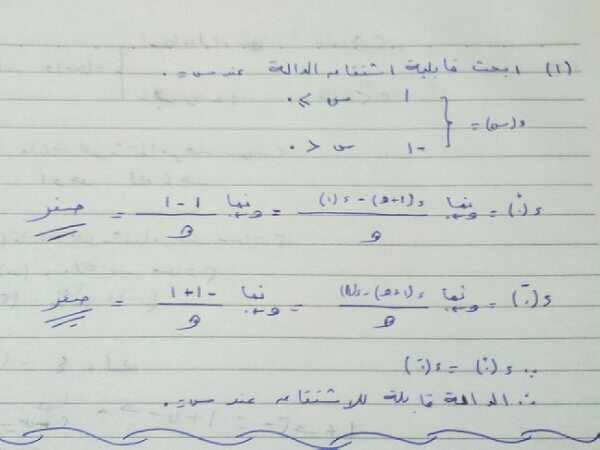 (١) ابحث قابلية اشتقاق الدالة عند س=٠
د(س) = { ١ س ≥ ٠
-١ س < ٠
د(٠⁺) = نهــا د(١+هـ) - د(٠) / هـ = نهــا ١-١ / هـ = صفر
د(٠⁻) = نهــا / هـ = نهــا -١+١ / هـ = صفر
∵ د(٠⁺) = د(٠⁻)
∴ الدالة قابلة للاشتقاق عند س=٠